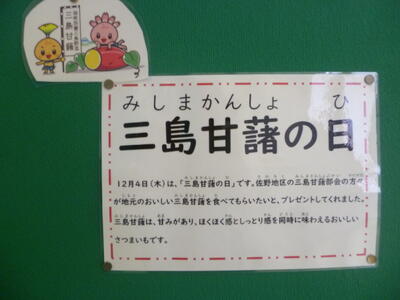 三島甘藷
みしまかんしょ ひ
三島甘藷の日
12月4日(木)は、「三島甘藷の日」です。佐野地区の三島甘藷部会の方々
が地元のおいしい三島甘藷を食べてもらいたいと、プレゼントしてくれました。
三島甘藷は、甘みがあり、ほくほく感としっとり感を同時に味わえるおいしい
さつまいもです。